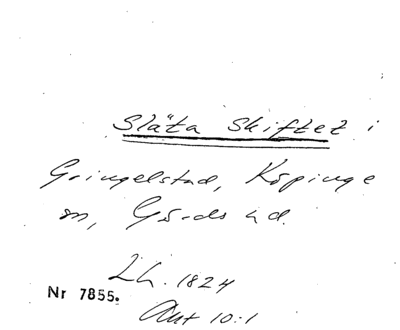 Släta Skiftet i
Gringelstad, Köpinge
sn, Gärds hd.
Lh. 1824
Nr 7855.
Akt 10:1